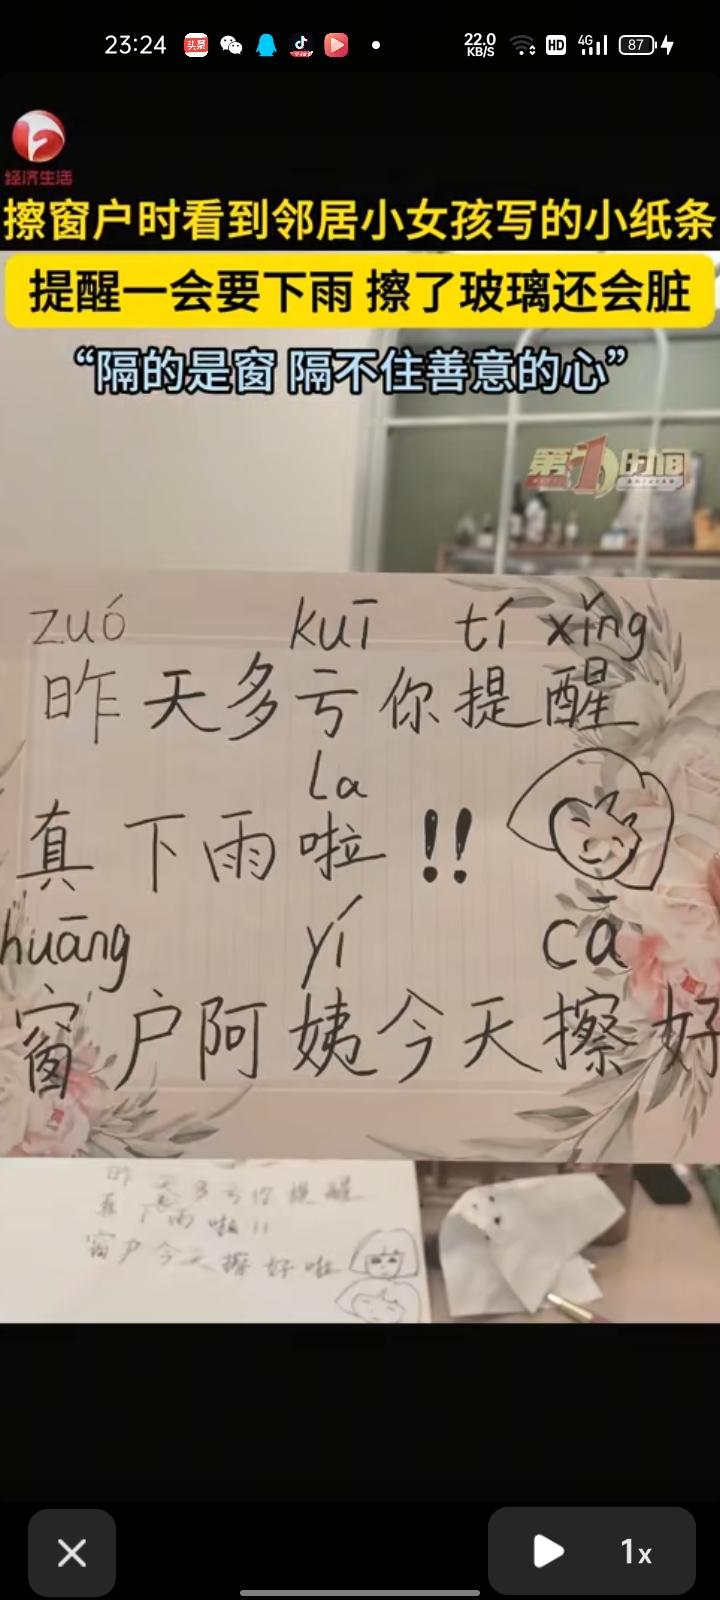 23:24
头条
22.0
KB/S
HD
4G
87
经济生活
擦窗户时看到邻居小女孩写的小纸条
提醒一会要下雨 擦了玻璃还会脏
“隔的是窗 隔不住善意的心”
第1时间
zuó kuī tí xíng
昨天多亏你提醒
La
真下雨啦!!
huāng yí cā
窗户阿姨今天擦好
昨天多亏你提醒
真下雨啦!!
窗户今天擦好啦
1x